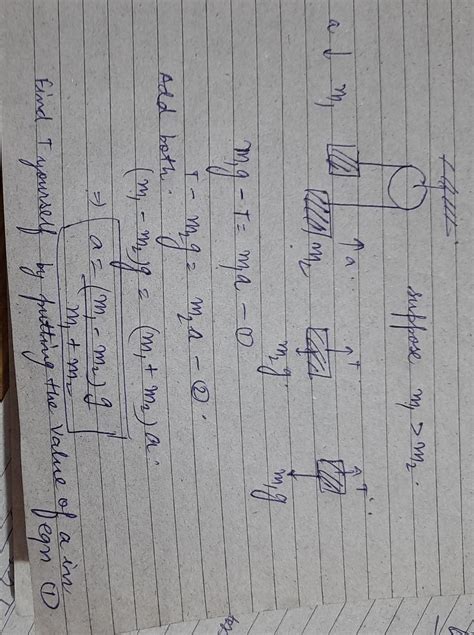 suppose m₁ > m₂.
a ↓ m₁
m₂ ↑ a
T
m₂g
T
m₁g
m₁g - T = m₁a - ①
T - m₂g = m₂a - ②.
Add both.
(m₁ - m₂)g = (m₁ + m₂)a.
⇒ a = (m₁ - m₂)g
m₁ + m₂
Find T yourself by putting the value of a in
eqn ①